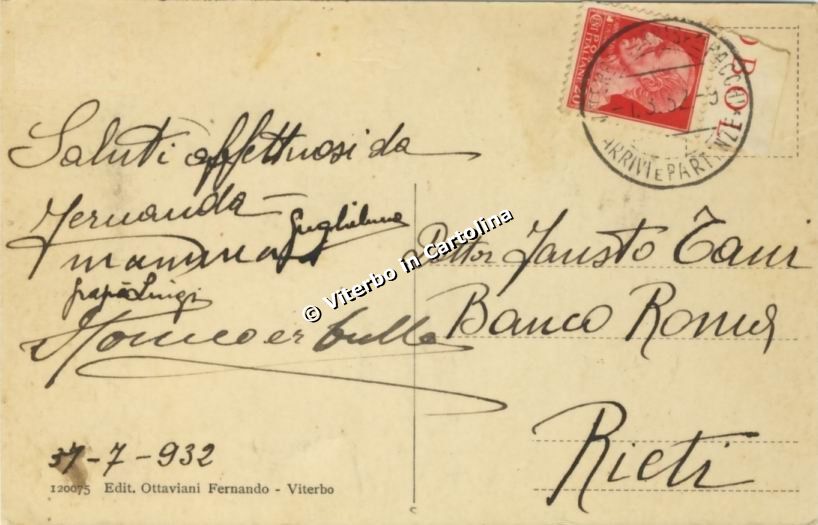 Saluti affettuosi da
Fernanda - Guglielmo
mamma
papà Luigi
31-7-932
120075 Edit. Ottaviani Fernando - Viterbo
© Viterbo in Cartolina
POSTE ITALIANE
20
ARRIVI E PARTENZE
Dottor Fausto Tani
Banco Roma
Rieti